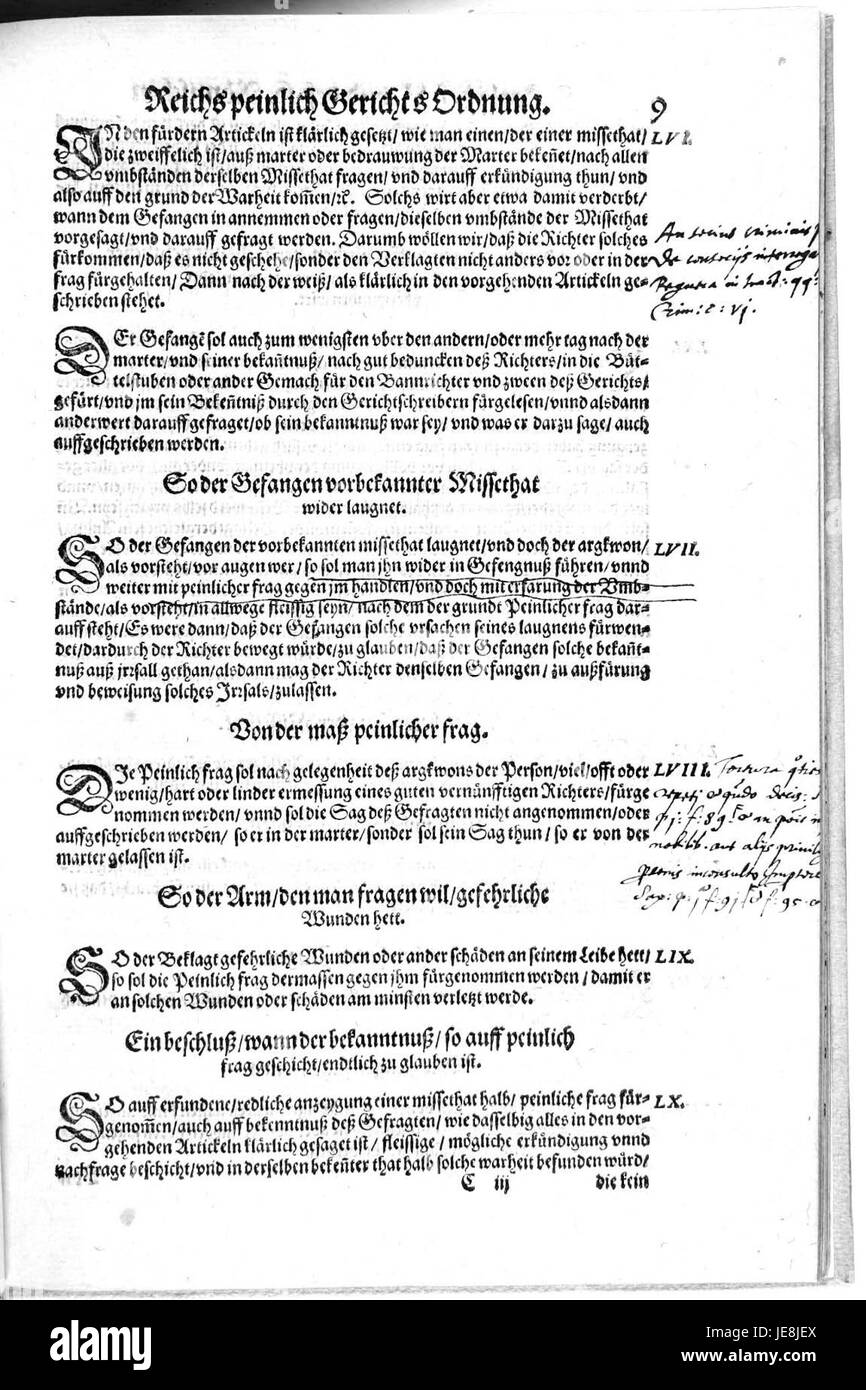 Reichs peinlich Gerichts Ordnung. 9
JN den fürdern Artickeln ist klärlich gesetzt/ wie man einen/der einer missethat/ LVI.
die zweiffelich ist/ auß marter oder bedrauwung der Marter bekeñet/nach allen
vmbständen derselben Missethat fragen/ vnd darauff erkündigung thun/ vnd
also auff den grund der Warheit kom̃en/ꝛc. Solchs wirt aber etwa damit verderbt/
wann dem Gefangen in annemmen oder fragen/dieselben vmbstände der Missethat
vorgesagt/vnd darauff gefragt werden. Darumb wöllen wir/daß die Richter solches
fürkommen/daß es nicht geschehe/sonder den Verklagten nicht anders vor oder in der
frag fürgehalten/ Dann nach der weiß/ als klärlich in den vorgehenden Artickeln ge-
schrieben stehet.
DEr Gefangẽ sol auch zum wenigsten vber den andern/oder mehr tag nach der
marter/vnd seiner bekañtnuß/ nach gut beduncken deß Richters/in die Büt-
telstuben oder ander Gemach für den Bannrichter vnd zween deß Gerichts/
gefürt/vnd jm sein Bekeñtniß durch den Gerichtschreibern fürgelesen/vnnd alsdann
anderwert darauff gefraget/ob sein bekanntnuß war sey/ vnd was er darzu sage/ auch
auffgeschrieben werden.
So der Gefangen vorbekannter Missethat
wider laugnet.
SO der Gefangen der vorbekannten missethat laugnet/vnd doch der argkwon/ LVII.
als vorsteht/vor augen wer/ so sol man jhn wider in Gefengnuß führen/ vnnd
weiter mit peinlicher frag gegen jm handlen/vnd doch mit erfarung der Vmb-
stände/als vorsteht/in allwege fleissig seyn/ nach dem der grundt Peinlicher frag dar-
auff steht/Es were dann/daß der Gefangen solche vrsachen seines laugnens fürwen-
det/dardurch der Richter bewegt würde/zu glauben/daß der Gefangen solche bekañt-
nuß auß jrrsall gethan/alsdann mag der Richter denselben Gefangen/ zu außfürung
vnd beweisung solches Jrrsals/zulassen.
Von der maß peinlicher frag.
DJe Peinlich frag sol nach gelegenheit deß argkwons der Person/viel/offt oder LVIII.
wenig/hart oder linder ermessung eines guten vernünfftigen Richters/fürge
nommen werden/vnnd sol die Sag deß Gefragten nicht angenommen/oder
auffgeschrieben werden/ so er in der marter/sonder sol sein Sag thun/ so er von der
marter gelassen ist.
So der Arm/den man fragen wil/gefehrliche
Wunden hett.
SO der Beklagt gefehrliche Wunden oder ander schäden an seinem Leibe hett/ LIX.
so sol die Peinlich frag dermassen gegen jhm fürgenommen werden/ damit er
an solchen Wunden oder schäden am minsten verletzt werde.
Ein beschluß/wann der bekanntnuß/ so auff peinlich
frag geschicht/endtlich zu glauben ist.
SO auff erfundene/redliche anzeygung einer missethat halb/ peinliche frag für- LX.
genom̃en/auch auff bekenntnuß deß Gefragten/ wie dasselbig alles in den vor-
gehenden Artickeln klärlich gesaget ist/ fleissige/ mögliche erkündigung vnnd
nachfrage beschicht/vnd in derselben bekeñter that halb solche warheit befunden würd/
C iij die kein
alamy
Image ID: JE8JEX
www.alamy.com